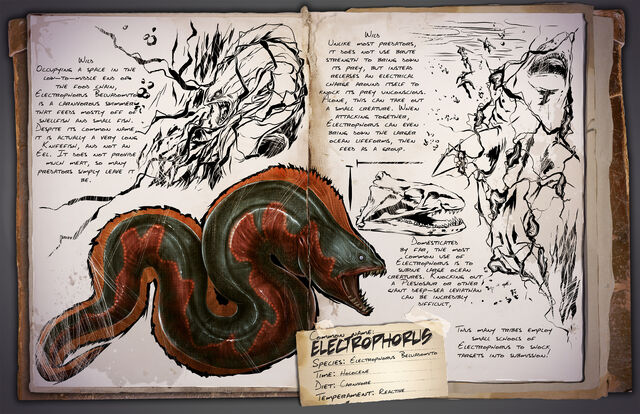 Wild
Occupying a space in the
low-to-middle end of
the food chain,
Electrophorus Beluadomito
is a carnivorous swimmer
that feeds mostly off of
shellfish and small fish.
Despite its common name,
it is actually a very long
Knifefish, and not an
Eel. It does not provide
much meat, so many
predators simply leave it
be.
Wild
Unlike most predators,
it does not use brute
strength to bring down
its prey, but instead
releases an electrical
charge around itself to
knock its prey unconscious.
Alone, this can take out
a small creature. When
attacking together,
Electrophorus can even
bring down the larger
ocean lifeforms, then
feed as a group.
Domesticated
By far, the most
common use of
Electrophorus is to
subdue large ocean
creatures. Knocking out
a Plesiosaur or other
giant deep-sea leviathan
can be incredibly
difficult,
thus many tribes employ
small schools of
Electrophorus to shock
targets into submission!
Common Name:
Electrophorus
Species: Electrophorus Beluadomito
Time: Holocene
Diet: Carnivore
Temperament: Reactive